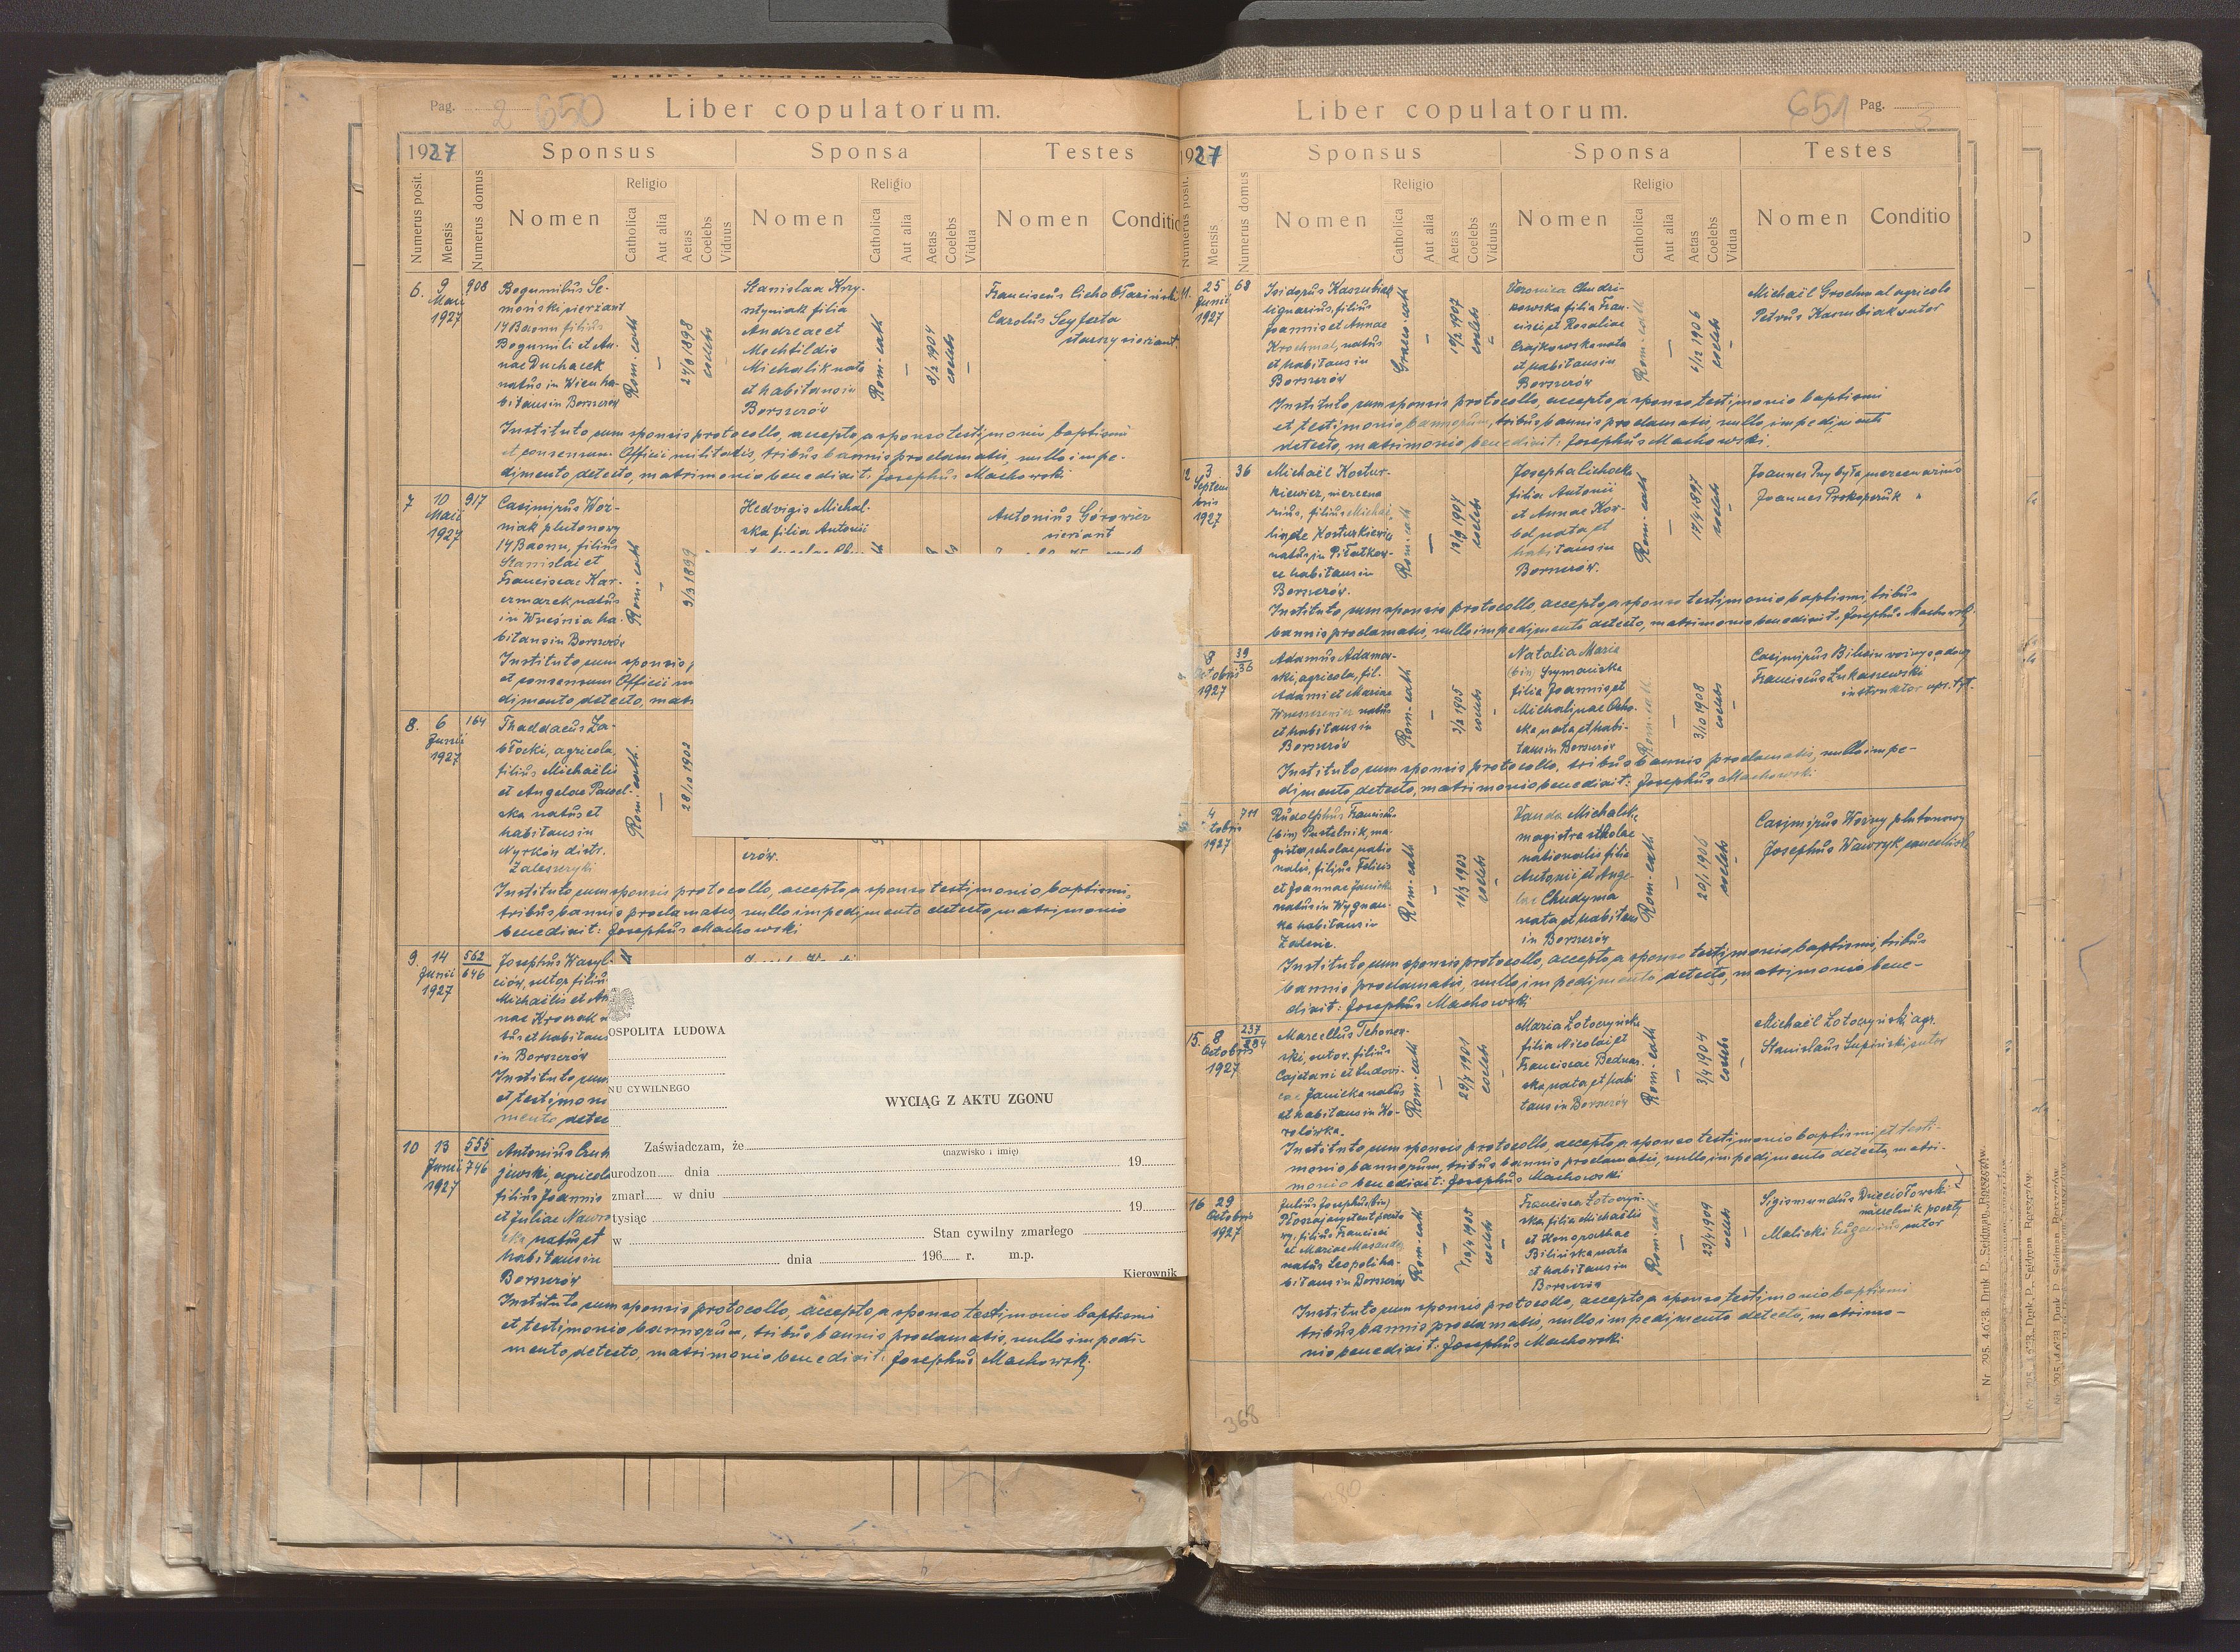 Pag. 2 650
Liber copulatorum.
1927
Sponsus
Sponsa
Testes
Numerus posit.
Mensis
Numerus domus
Nomen
Religio
Catholica
Aut alia
Aetas
Coelebs
Viduus
Nomen
Religio
Catholica
Aut alia
Aetas
Coelebs
Vidua
Nomen
Conditio
6. 9 Maii 1927
908
Bogumilus Se-
moński, sierżant
14 Baonu filius
Bogumili et An-
nae Duchacek
natus in Wien ha-
bitans in Borszczów
Rom. cath
24/8 1898
coelebs
Stanislaa Krzy-
sztyniak filia
Andreae et
Mechtildis
Michalik nata
et habitans in
Borszczów
Rom. cath
8/2 1904
coelebs
Carolus Seyferta
starszy sierżant.
Instituto cum sponsis protocollo, accepto a sponso testimonio baptismi
et consensum Officii militaris, tribus bannis proclamatis, nullo impe-
dimento detecto, matrimonio benedixit: Josephus Machowski
7 10 Maii 1927
917
Casimirus Woź-
niak plutonowy
14 Baonu, filius
Stanislai et
Franciscae Kar-
czmarek natus
in Września ha-
bitans in Borszczów
Rom. cath
9/3 1899
Hedvigis Michal-
ska filia Antonii
Antonius Górowicz
sierżant
Instituto cum sponsis
et consensum Officii
dimento detecto,
8. 6 Junii 1927
164
Thaddaeus Za-
błocki, agricola,
filius Michaëlis
et Angelae Pawel-
ska natus et
habitans in
Nyrków distr.
Zaleszczyki
Rom. cath.
28/10 1902
czów.
Instituto cum sponsis protocollo, accepto a sponso testimonio baptismi,
tribus bannis proclamatis, nullo impedimento detecto matrimonio
benedixit: Josephus Machowski
9. 14 Junii 1927
562
646
Josephus Wasyl-
ciów, sutor filius
Michaëlis et An
nae
tus et habitans
in Borszczów
Instituto cum
et testimonio
mento detec
OSPOLITA LUDOWA
NU CYWILNEGO
WYCIĄG Z AKTU ZGONU
Zaświadczam, że
(nazwisko i imię)
urodzon..... dnia 19
zmarł..... w dniu
tysiąc 19
w Stan cywilny zmarłego
dnia 196 r. m.p.
Kierownik
10 13 Junii 1927
555
746
Antonius
jewski, agricola
filius Joannis
et Juliae
ska natus et
habitans in
Borszczów
Instituto cum sponsis protocollo, accepto a sponso testimonio baptismi
et testimonio bannorum, tribus bannis proclamatis, nullo impedi-
mento detecto, matrimonio benedixit: Josephus Machowski
Liber copulatorum.
651 Pag. 3
1927
Sponsus
Sponsa
Testes
Numerus posit.
Mensis
Numerus domus
Nomen
Religio
Catholica
Aut alia
Aetas
Coelebs
Viduus
Nomen
Religio
Catholica
Aut alia
Aetas
Coelebs
Vidua
Nomen
Conditio
11. 25 Junii 1927
68
Isidorus Kaszubiak
lignarius, filius
Joannis et Annae
Krochmal, natus
et habitans in
Borszczów
Graeco-cath
19/2 1907
coelebs
Veronica Chudzi-
kowska filia Fran-
cisci et Rosaliae
Czajkowska nata
et habitans in
Borszczów
Rom. cath
6/12 1906
coelebs
Michaël Grochmal agricola
Petrus Kaszubiak sutor
Instituto cum sponsis protocollo, accepto a sponso testimonio baptismi
et testimonio bannorum, tribus bannis proclamatis, nullo impedimento
detecto, matrimonio benedixit: Josephus Machowski.
12 3 Septembris 1927
36
Michaël Kostur-
kiewicz, mercena
rius, filius Michaë-
lis et Kosturkiewicz
natus in Piłatkow-
ce habitans in
Borszczów.
Rom. cath
13/9 1904
coelebs
Josepha Cichocka
filia Antonii
et Annae Kow-
bel nata et
habitans in
Borszczów.
Rom. cath
17/4 1897
coelebs
Joannes Przybyła mercenarius
Joannes Prokopczuk "
Instituto cum sponsis protocollo accepto a sponso testimonio baptismi, tribus
bannis proclamatis, nullo impedimento detecto, matrimonio benedixit: Josephus Machowski.
8 Octobris 1927
39
36
Adamus Adamow-
ski, agricola, fil.
Adami et Mariae
natus
et habitans in
Borszczów
Rom. cath
3/2 1905
coelebs
Natalia Maria
(bin) Szymańska
filia Joannis et
Michalinae Osho-
ska nata et habi-
tans in Borszczów
Rom. cath
3/10 1908
coelebs
Franciscus Łukaszewski
Instituto cum sponsis protocollo, tribus bannis proclamatis, nullo impe-
dimento detecto, matrimonio benedixit: Josephus Machowski
4 tobris 1927
711
Rudolphus Franciscus
(bin) Pustelnik, ma-
gister scholae natio
nalis, filius Felicis
et Joannae Janicka
natus in Wygnan-
ka habitans in
Zalesie.
Rom. cath
16/3 1903
coelebs
Vanda Michalska
magistra scholae
nationalis filia
Antonii et Ange-
lae Chudyma
nata et habitans
in Borszczów
Rom. cath
20/1 1906
coelebs
Casimirus Woźny plutonowy
Josephus Wawryk cancellista
Instituto cum sponsis protocollo, accepto a sponso testimonio baptismi, tribus
bannis proclamatis, nullo impedimento detecto, matrimonio bene-
dixit: Josephus Machowski
15. 8 Octobris 1927
237
284
Marcellus Tchorzew-
ski, sutor, filius
Cajetani et Ludovi-
cae Janicka natus
et habitans in Ko-
rolówka.
Rom. cath
29/7 1901
coelebs
Maria Łotoczyńska
filia Nicolai et
Franciscae Bednar-
ska nata et habi
tans in Borszczów
Rom. cath
3/4 1904
coelebs
Michaël Łotoczyński agr.
Stanislaus Łupiński sutor
Instituto cum sponsis protocollo, accepto a sponso testimonio baptismi et testi-
monio bannorum, tribus bannis proclamatis, nullo impedimento detecto, matri-
monio benedixit: Josephus Machowski
16 29 Octobris 1927
Julius Josephus (bin)
wy, filius Francisci
et Mariae
natus Leopoli ha-
bitans in Borszczów
Rom. cath
coelebs
Francisca Łotoczyń-
ska, filia Michaëlis
et Honorathae
Bilińska nata
et habitans in
Borszczów
Rom. cath
23/4 1909
coelebs
Sigismundus Dzieciołowski
naczelnik poczty
Malicki Eugenius sutor
Instituto cum sponsis protocollo, accepto a sponso testimonio baptismi
tribus bannis proclamatis, nullo impedimento detecto, matrimo-
nio benedixit: Josephus Machowski
368
Nr. 295. 4.6'23. Druk P. Seidman, Borszczów.